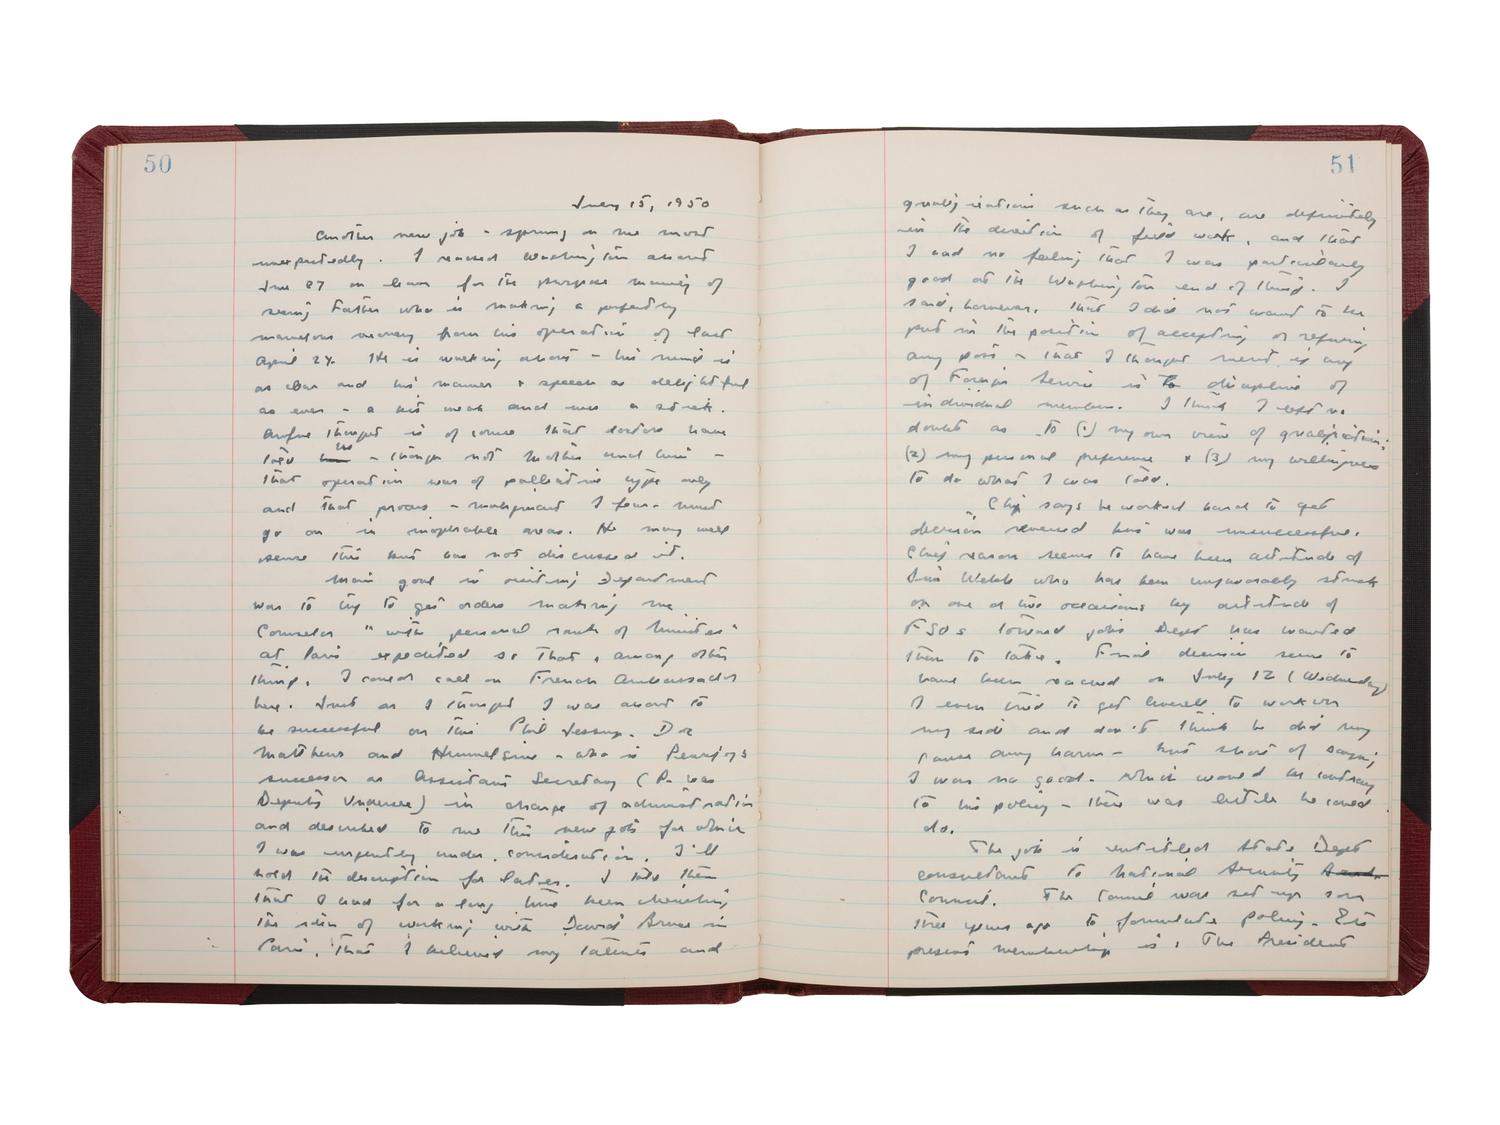 50
July 15, 1950
Another new job - sprung on me most
unexpectedly. I reached Washington about
June 27 on leave for the purpose mainly of
seeing Father who is making a perfectly
marvelous recovery from his operation of last
April 24. He is walking about - his mind is
as clear and his manner & speech as delightful
as ever - a bit weak and uses a stick.
Awful thought is of course that doctors have
told him us - though not Mother and him -
that operation was of palliative type only
and that process - malignant I fear - must
go on in inoperable areas. He may well
sense this but has not discussed it.
Main goal in visiting Department
was to try to get orders making me
Counselor "with personal rank of Minister"
at Paris expedited so that, among other
things, I could call on French Ambassador
here. Just as I thought I was about to
be successful on this Phil Jessup, Doc
Matthews and Humelsine - who is Peurifoy's
successor as Assistant Secretary (P. was
Deputy Undersec) in charge of administration
and described to me this new job for which
I was urgently under consideration. I'll
hold the description for later. I told them
that I had for a long time been cherishing
the idea of working with David Bruce in
Paris, that I believed my talents and
51
qualifications such as they are, are definitely
in the direction of field work, and that
I had no feeling that I was particularly
good at the Washington end of things. I
said, however, that I did not want to be
put in the position of accepting or refusing
any post - that I thought merit if any
of Foreign Service is the discipline of
individual members. I think I left no
doubt as to (1) my own view of qualifications
(2) my personal preference & (3) my willingness
to do what I was told.
Chip says he worked hard to get
decision reversed but was unsuccessful.
Chief reason seems to have been attitude of
Jim Webb who has been unfavorably struck
on one or two occasions by attitude of
FSOs toward jobs Dept has wanted
them to take. Final decision seems to
have been reached on July 12 (Wednesday)
I even tried to get Averell to work on
my side and don't think he did my
cause any harm - but short of saying
I was no good - which would be contrary
to his policy - there was little he could
do.
The job is entitled State Dept
consultant to National Security
Council. The Council was set up some
three years ago to formulate policy. Its
present membership is: The President